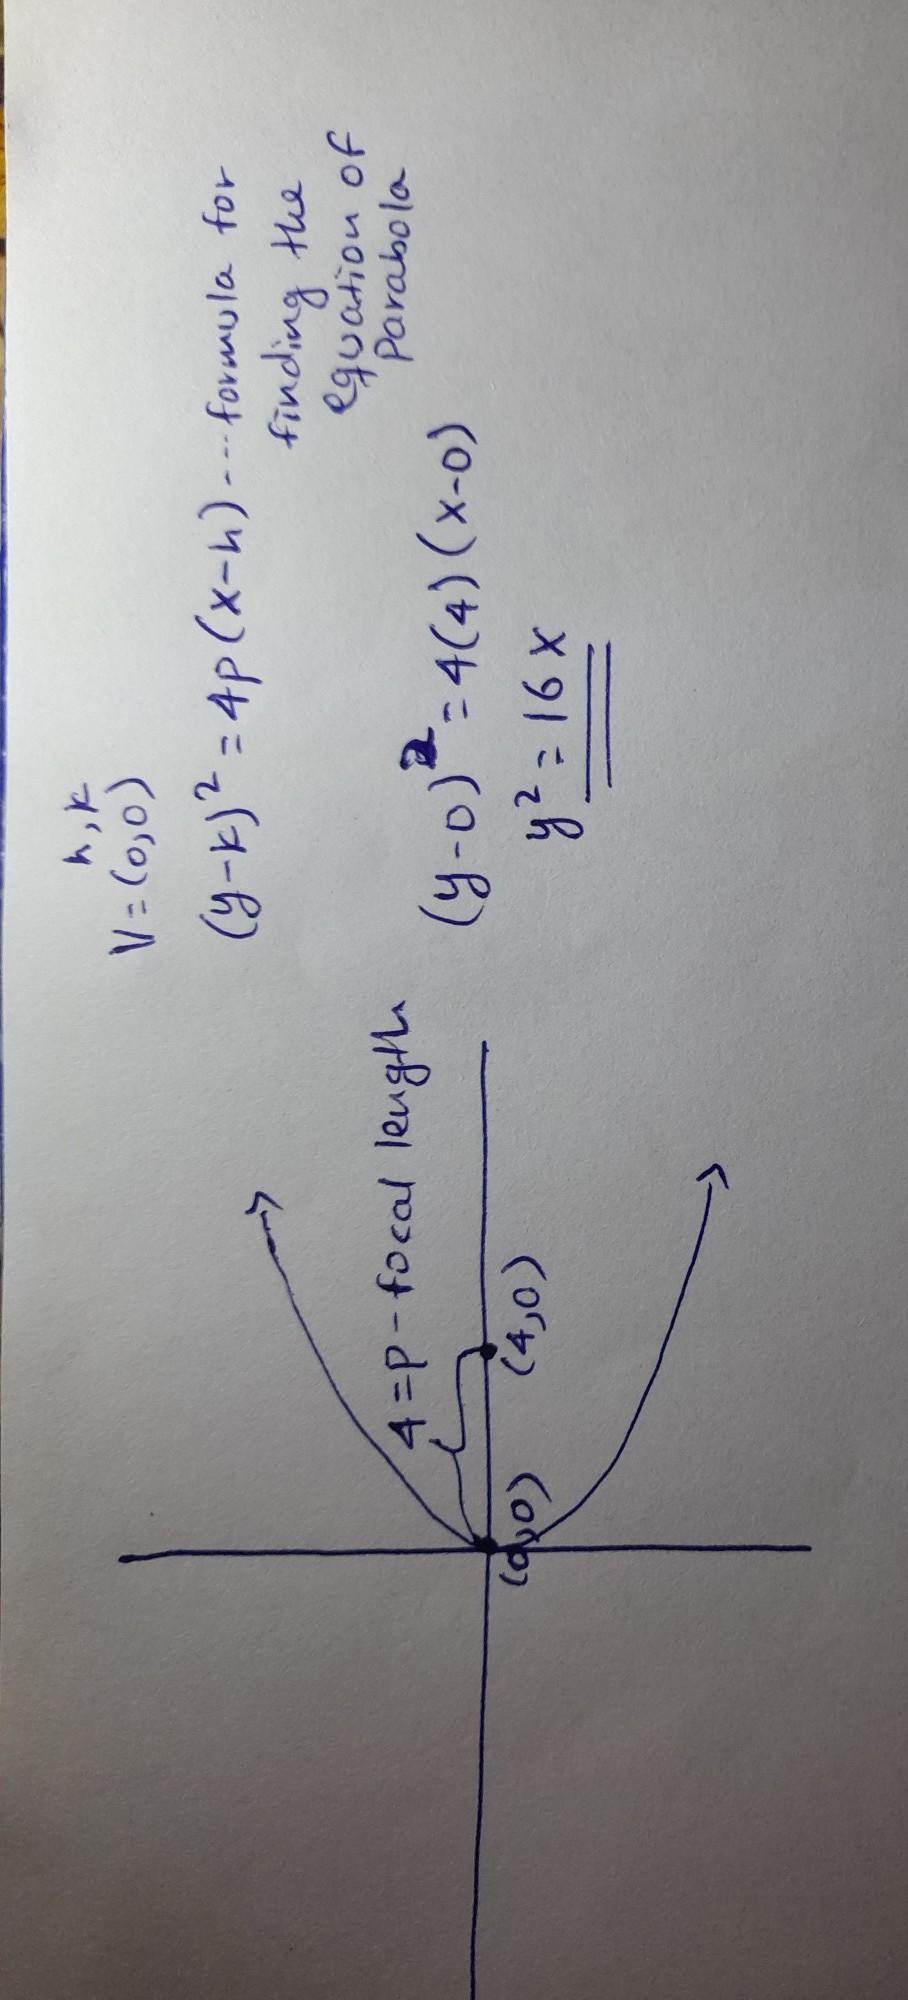 h, k
V = (0,0)
(y-k)² = 4p(x-h) --- formula for
finding the
equation of
Parabola
4 = P - focal length
(y-0)² = 4(4)(x-0)
y² = 16x
(0,0)
(4,0)